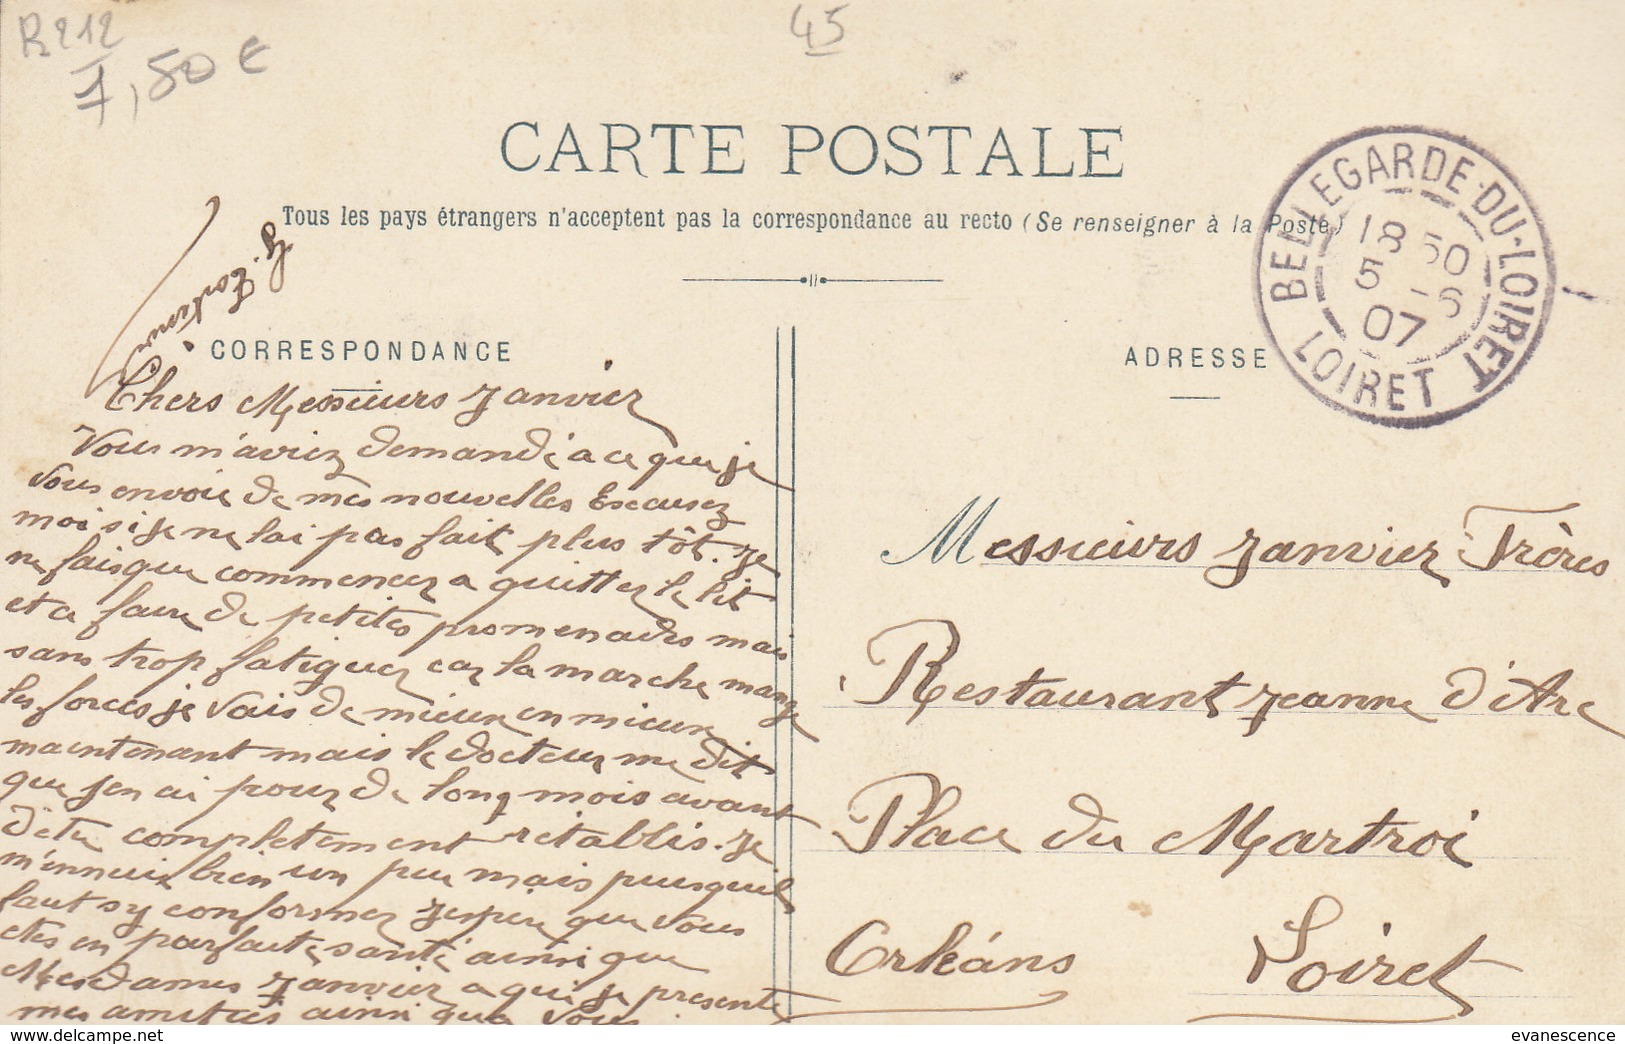 R212
7,50 €
45
CARTE POSTALE
Tous les pays étrangers n'acceptent pas la correspondance au recto (Se renseigner à la Poste)
BELLEGARDE-DU-LOIRET
18 50
5 -6
07
LOIRET
CORRESPONDANCE
ADRESSE
Chers Messieurs Janvier
Vous m'aviez demandé a ce que je
vous envoie de mes nouvelles Escusez
moi si je ne lai pas fait plus tôt. Je
ne fais que commencer a quitter le lit
et a faire de petites promenades mais
sans trop fatiguer car la marche mange
les forces je vais de mieux en mieux
maintenant mais le docteur me dit
que jen ai pour de long mois avant
d'etre completement rétablis. Je
m'ennuie bien un peu mais puisquil
faut sy conformer Jespere que vous
etes en parfaite santé ainsi que
Mesdames Janvier a qui je presente
mes amities ainsi qua vous
Messieurs Janvier Frères
Restaurant Jeanne d'Arc
Place du Martroi
Orléans Loiret
delcampe.net
evanescence